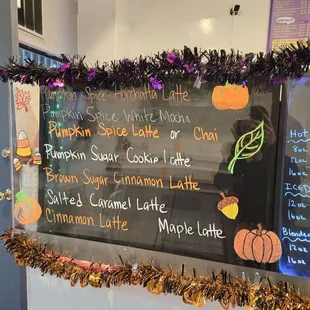 Pumpkin Spice Horchatta Latte
Pumpkin Spice White Mocha
Pumpkin Spice Latte or Chai
Pumpkin Sugar Cookie Latte
Brown Sugar Cinnamon Latte
Salted Caramel Latte
Cinnamon Latte Maple Latte
Hot
8oz
12oz
16oz
ICED
12oz
16oz
Blended
12oz
16oz